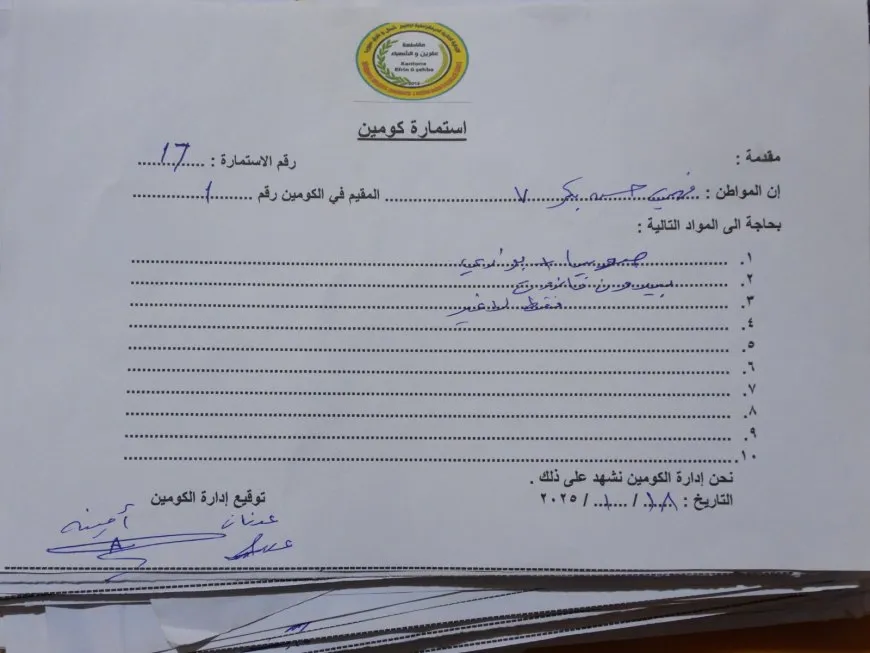 مقاطعة
عفرين و الشهباء
Kantona
Efrîn û Şehba
استمارة كومين
مقدمة :
رقم الاستمارة : 17
إن المواطن : حسن بكر ٧ المقيم في الكومين رقم 1
بحاجة الى المواد التالية :
١.
٢. بيدون مازوت
٣. فقط لا غير
٤.
٥.
٦.
٧.
٨.
٩.
١٠.
نحن إدارة الكومين نشهد على ذلك .
التاريخ : ١٨ / ١ / ٢٠٢٥
توقيع إدارة الكومين
عدنان أمينه